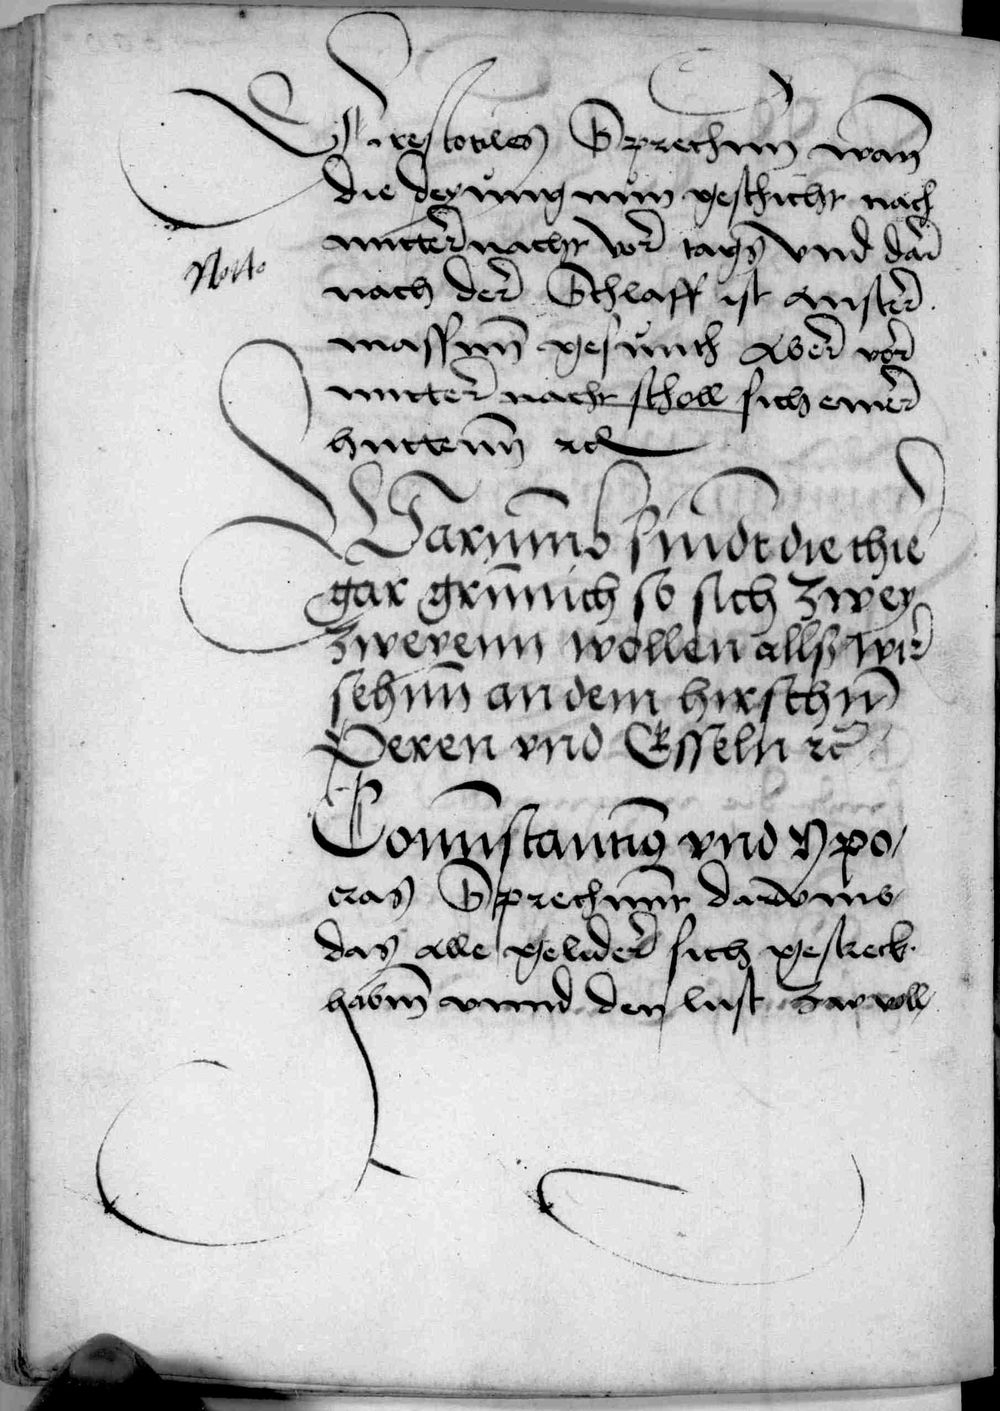 Arestotiles Sprechnn wan̄
die deyung nun geschicht nach
mitter nacht vor tags vnd dar
Notto
nach der Schlaff ist auster
massenn gesunth Aber vor
mitter nacht scholl sich einer
huttenn rc
Warumb sindt die thie
gar grimich so sich zwey
zweyenn wollen allß wir
sehnn an dem hirschn̄
Peren vnd Esseln rc
Connstantig vnd Ypo/
cras Sprechnnt darumb
das alle gelider sich gestreck
habnn vnnd den lust zw voll/